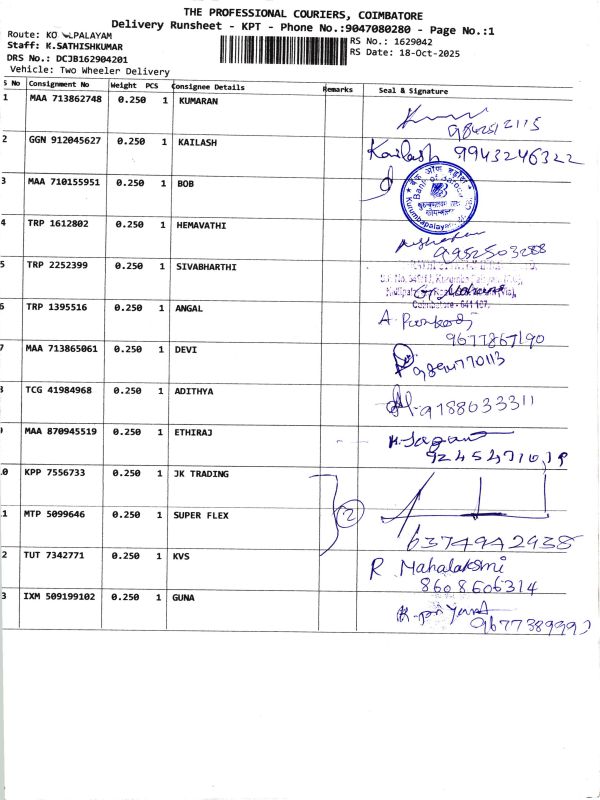 THE PROFESSIONAL COURIERS, COIMBATORE
Delivery Runsheet - KPT - Phone No.:9047080280 - Page No.:1
Route: KO LPALAYAM
Staff: K.SATHISHKUMAR
RS No.: 1629042
DRS No.: DCJB162904201
RS Date: 18-Oct-2025
Vehicle: Two Wheeler Delivery
S No Consignment No Weight PCS Consignee Details Remarks Seal & Signature
1 MAA 713862748 0.250 1 KUMARAN
2 GGN 912045627 0.250 1 KAILASH Kailash 9943246322
3 MAA 710155951 0.250 1 BOB
Bank of Baroda
4 TRP 1612802 0.250 1 HEMAVATHI
9952503288
5 TRP 2252399 0.250 1 SIVABHARTHI
Coimbatore - 641 107.
6 TRP 1395516 0.250 1 ANGAL A.
9677867190
7 MAA 713865061 0.250 1 DEVI
8 TCG 41984968 0.250 1 ADITHYA 9188033311
9 MAA 870945519 0.250 1 ETHIRAJ
10 KPP 7556733 0.250 1 JK TRADING
11 MTP 5099646 0.250 1 SUPER FLEX 2
6374942938
12 TUT 7342771 0.250 1 KVS R. Mahalakshmi
8608606314
13 IXM 509199102 0.250 1 GUNA